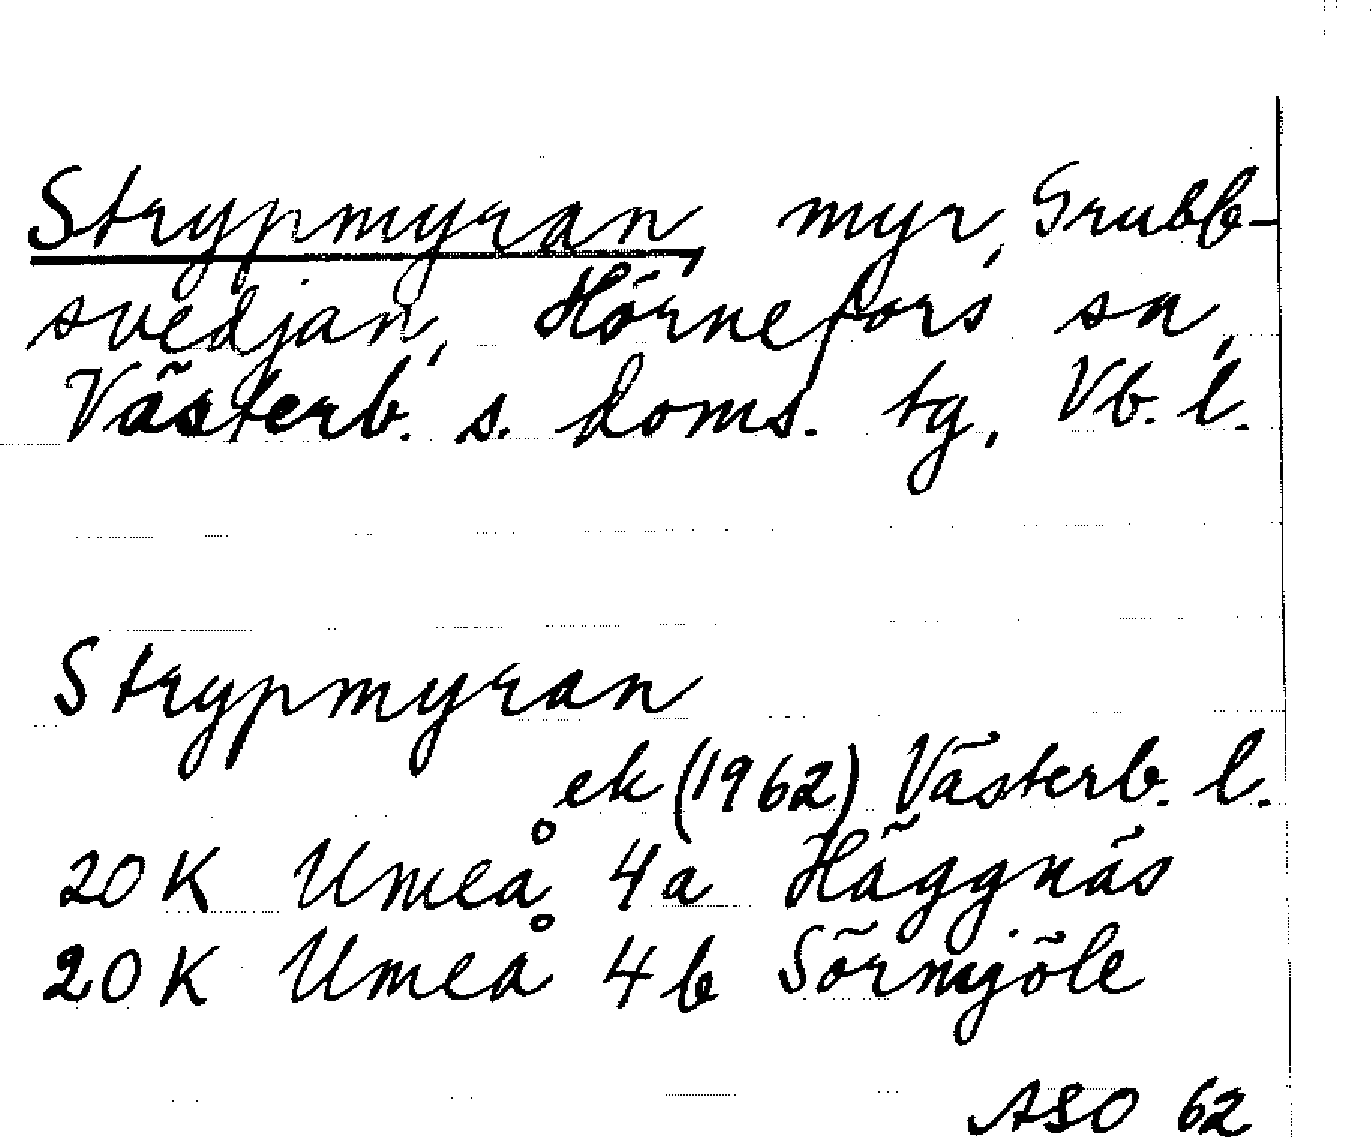 Strypmyran, myr, Grubb-
svedjan, Hörnefors sn,
Västerb. s. doms. tg, Vb. l.
Strypmyran
ek (1962) Västerb. l.
20 K Umeå 4a Häggnäs
20 K Umeå 4b Sörmjöle
ASO 62